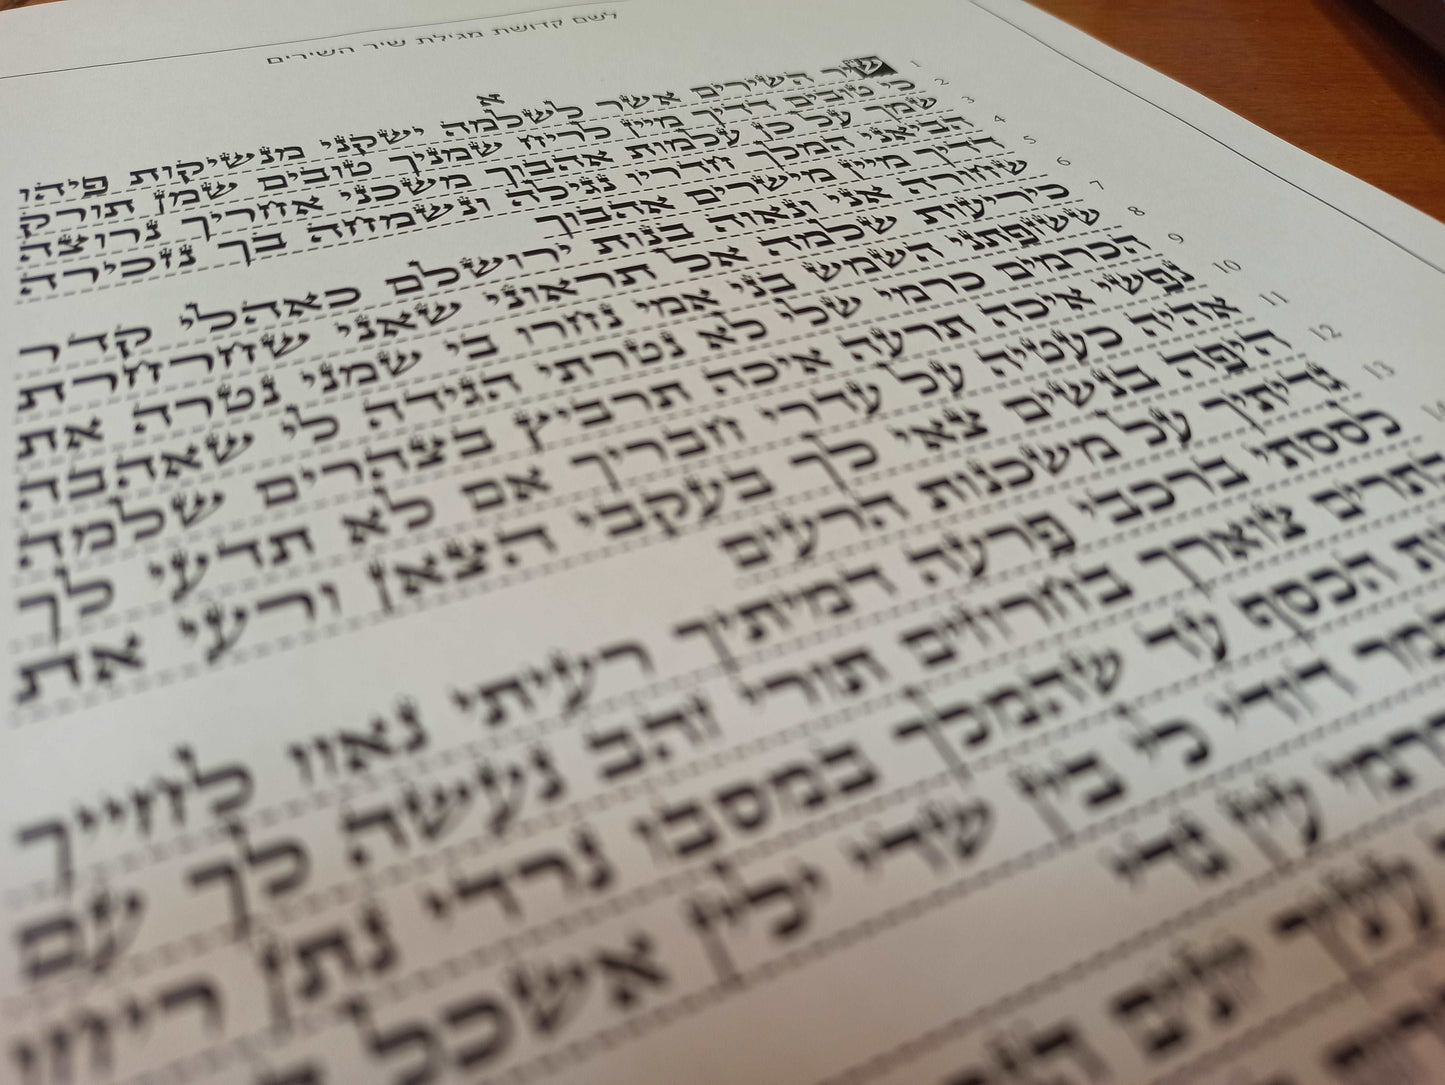 לשם קדושת מגילת שיר השירים
א
1 שיר השירים אשר לשלמה ישקני מנשיקות פיהו
2 כי טובים דדיך מיין לריח שמניך טובים שמן תורק
3 שמך על כן עלמות אהבוך משכני אחריך נרוצה
4 הביאני המלך חדריו נגילה ונשמחה בך נזכירה
5 דדיך מיין מישרים אהבוך
6 שחורה אני ונאוה בנות ירושלם כאהלי קדר
7 כיריעות שלמה אל תראוני שאני שחרחרת
8 ששזפתני השמש בני אמי נחרו בי שמני נטרה את
9 הכרמים כרמי שלי לא נטרתי הגידה לי שאהבה
10 נפשי איכה תרעה איכה תרביץ בצהרים שלמה
11 אהיה כעטיה על עדרי חבריך אם לא תדעי לך
12 היפה בנשים צאי לך בעקבי הצאן ורעי את
13 גדיתיך על משכנות הרעים
לססתי ברכבי פרעה דמיתיך רעיתי נאוו לחייך
בתרים צוארך בחרוזים תורי זהב נעשה לך עם
הכסף עד שהמלך במסבו נרדי נתן ריחו
דודי לי בין שדי ילין אשכל
עין גדי
יונים